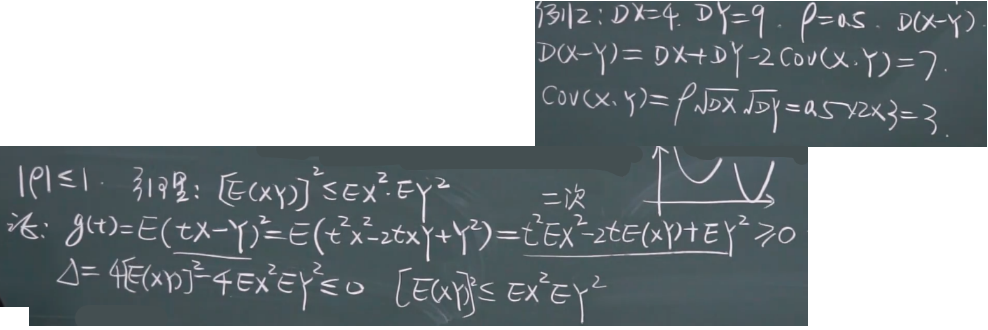 例2: DX=4. DY=9. ρ=0.5. D(X-Y).
D(X-Y)=DX+DY-2Cov(X.Y)=7.
Cov(X.Y)=ρ√DX √DY=0.5×2×3=3.
|ρ|≤1. 引理: [E(XY)]²≤EX²·EY²
二次
证: g(t)=E(tX-Y)²=E(t²X²-2tXY+Y²)=t²EX²-2tE(XY)+EY²≥0
Δ=4[E(XY)]²-4EX²EY²≤0 [E(XY)]²≤EX²EY²